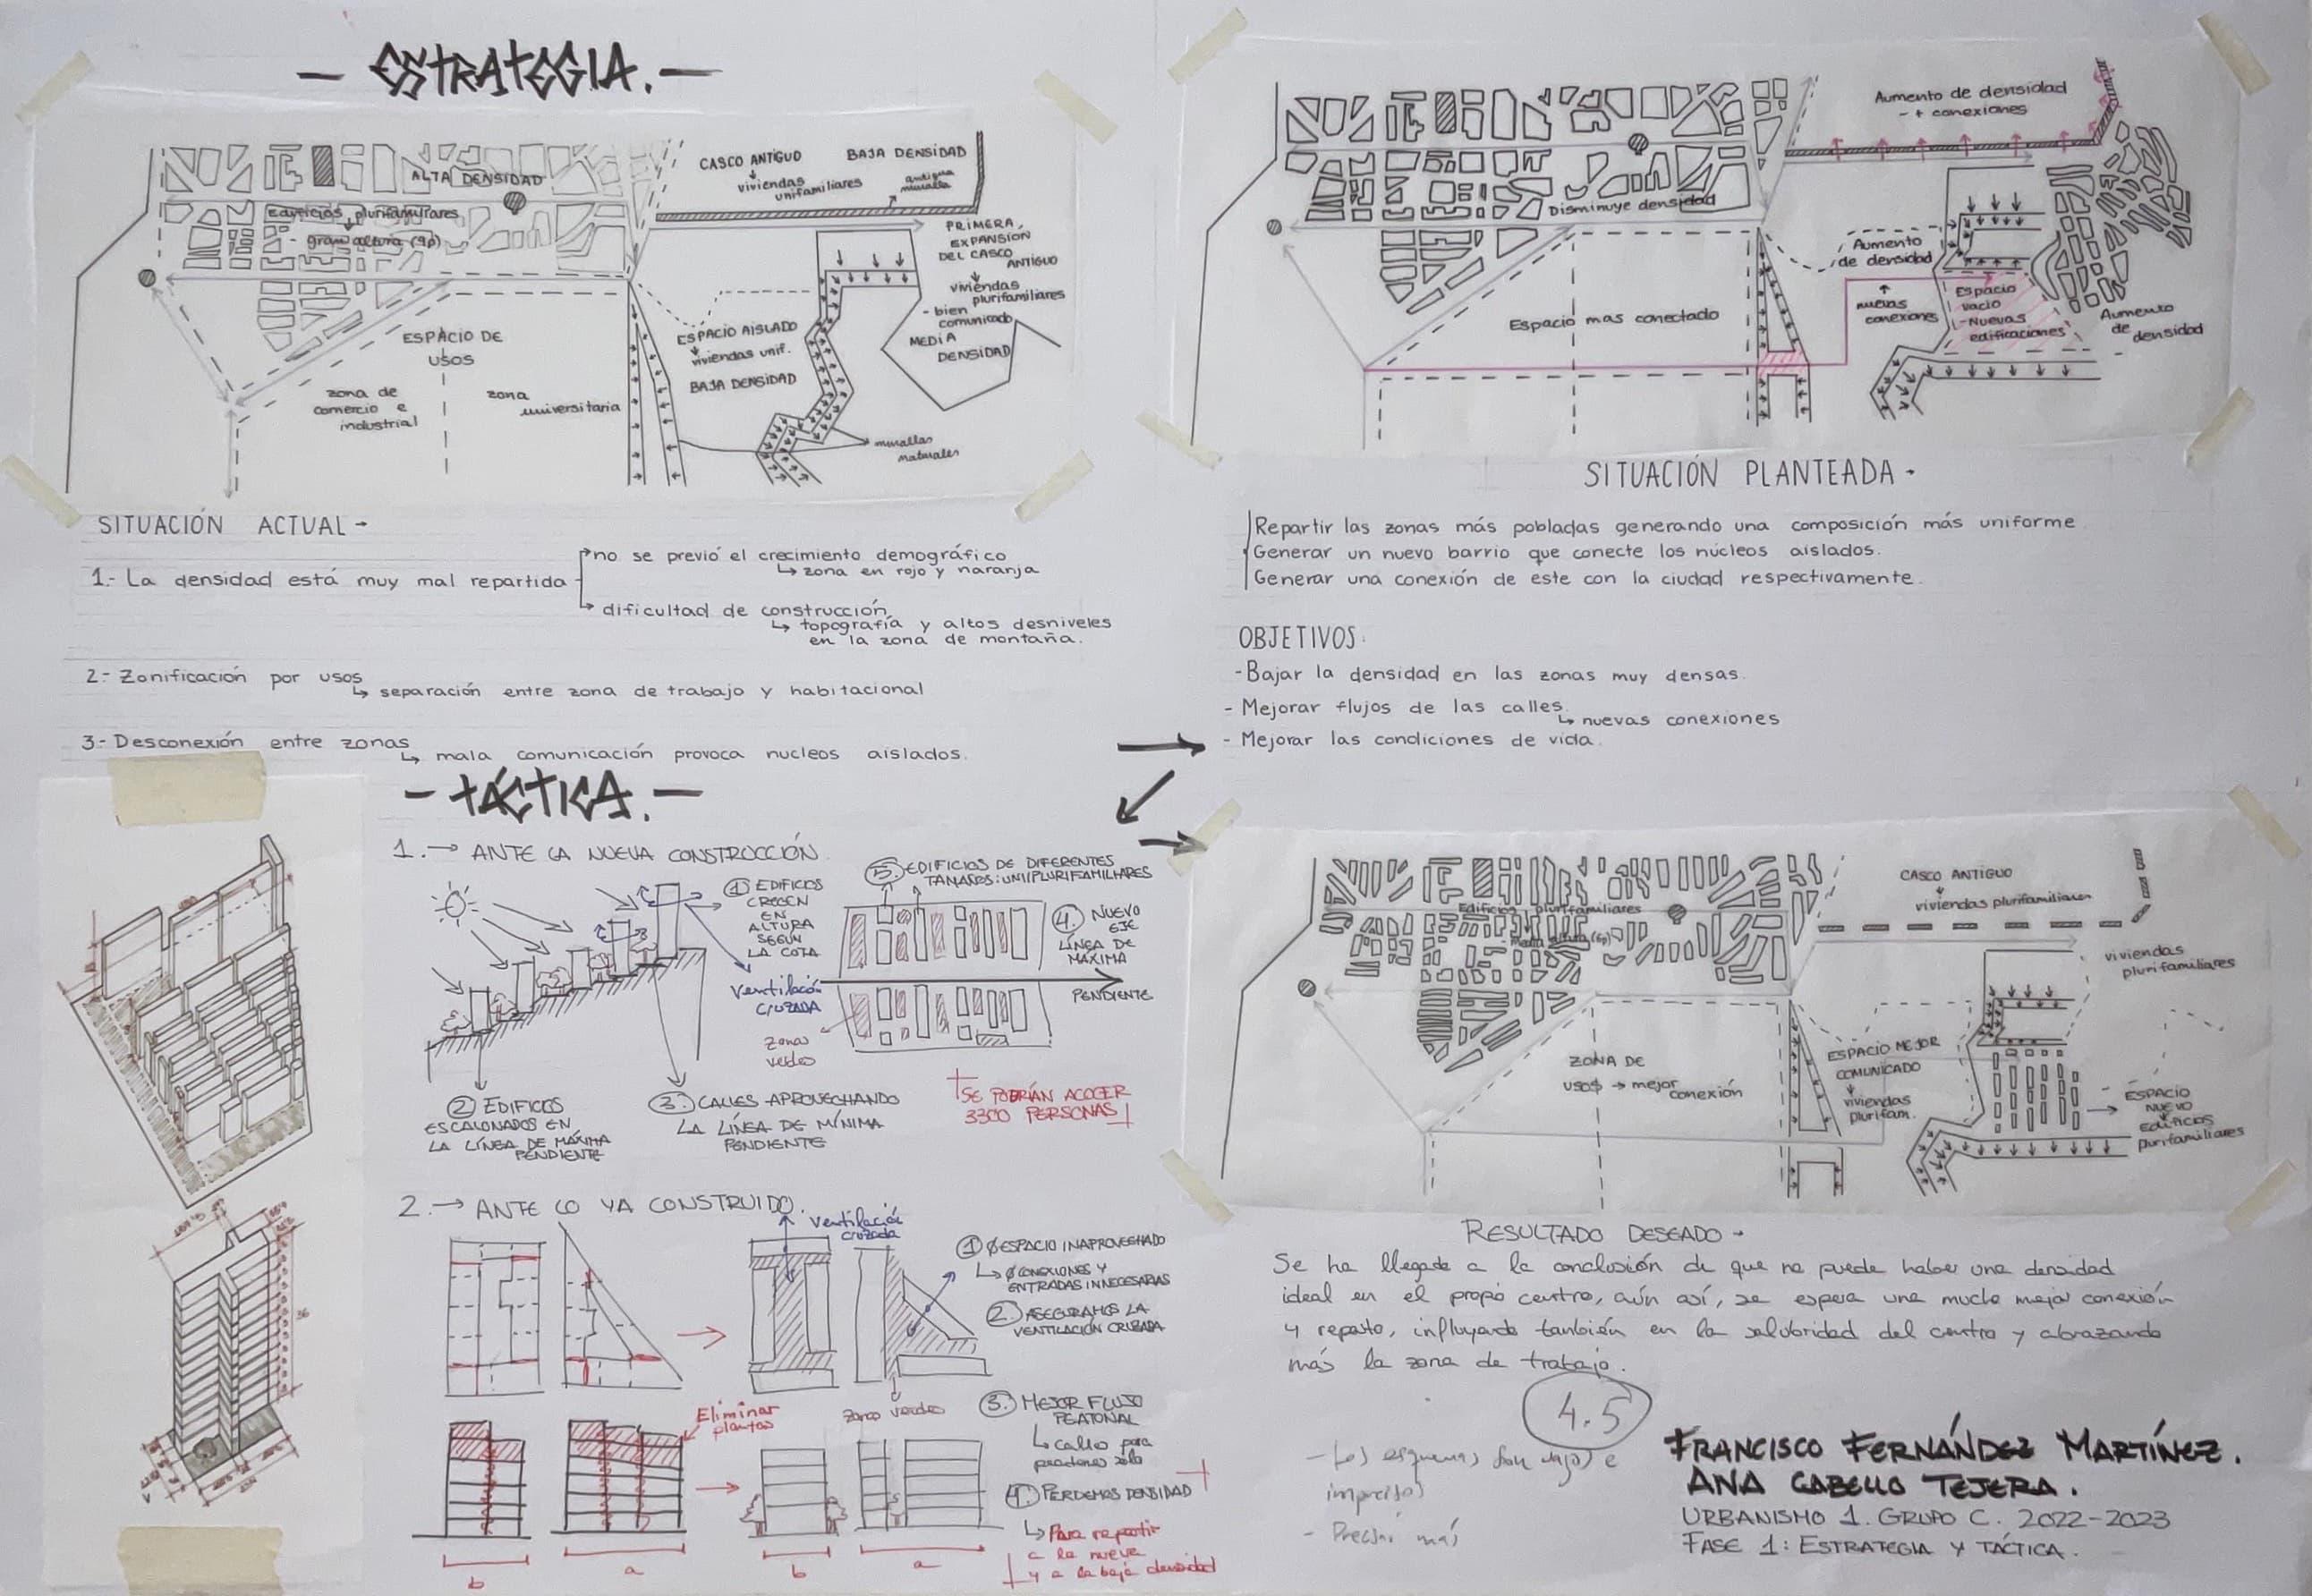 - ESTRATEGIA. -
ALTA DENSIDAD
Edificios plurifamiliares
- gran altura (9p)
CASCO ANTIGUO
viviendas
unifamiliares
BAJA DENSIDAD
antigua
muralla
PRIMERA
EXPANSIÓN
DEL CASCO
ANTIGUO
viviendas
plurifamiliares
- bien
comunicado
MEDIA
DENSIDAD
ESPACIO DE
USOS
zona de
comercio e
industrial
zona
universitaria
ESPACIO AISLADO
viviendas unif.
BAJA DENSIDAD
murallas
naturales
SITUACIÓN ACTUAL-
1.- La densidad está muy mal repartida
no se previó el crecimiento demográfico
↳ zona en rojo y naranja
dificultad de construcción
↳ topografía y altos desniveles
en la zona de montaña.
2.- Zonificación por usos
↳ separación entre zona de trabajo y habitacional
3.- Desconexión entre zonas
↳ mala comunicación provoca nucleos aislados.
Aumento de densidad
- + conexiones
Disminuye densidad
Aumento
de densidad
nuevas
conexiones
Espacio
vacio
- Nuevas
edificaciones
Aumento
de
densidad
Espacio mas conectado
SITUACIÓN PLANTEADA-
Repartir las zonas más pobladas generando una composición más uniforme
Generar un nuevo barrio que conecte los núcleos aislados.
Generar una conexión de este con la ciudad respectivamente.
OBJETIVOS:
-Bajar la densidad en las zonas muy densas.
- Mejorar flujos de las calles
↳ nuevas conexiones
- Mejorar las condiciones de vida.
- TÁCTICA. -
1. → ANTE LA NUEVA CONSTRUCCIÓN.
① EDIFICIOS
CRECEN
EN
ALTURA
SEGÚN
LA COTA
ventilación
cruzada
⑤ EDIFICIOS DE DIFERENTES
TAMAÑOS: UNI/PLURIFAMILIARES
④. NUEVO
EJE
LÍNEA DE
MÁXIMA
PENDIENTE
zonas
verdes
② EDIFICIOS
ESCALONADOS EN
LA LÍNEA DE MÁXIMA
PENDIENTE
③. CALLES APROVECHANDO
LA LÍNEA DE MÍNIMA
PENDIENTE
SE PODRÍAN ACOGER
3300 PERSONAS
2. → ANTE LO YA CONSTRUIDO.
ventilación
cruzada
① Ø ESPACIO INAPROVECHADO
↳ Ø CONEXIONES Y
ENTRADAS INNECESARIAS
②. ASEGURAMOS LA
VENTILACIÓN CRUZADA
zonas verdes
③. MEJOR FLUJO
PEATONAL
↳ calles para
peatones solo
Eliminar
plantas
④. PERDEMOS DENSIDAD
↳ Para repartir
a la nueva
y a la baja densidad
b
a
b
a
36
Edificios plurifamiliares
- media altura (6p)
CASCO ANTIGUO
viviendas plurifamiliares
viviendas
plurifamiliares
ZONA DE
USOS → mejor
conexión
ESPACIO MEJOR
COMUNICADO
viviendas
plurifam.
ESPACIO
NUEVO
EDIFICIOS
plurifamiliares
RESULTADO DESEADO -
Se ha llegado a la conclusión de que no puede haber una densidad
ideal en el propio centro, aún así, se espera una mucho mejor conexión
y reparto, influyendo también en la salubridad del centro y abrazando
más la zona de trabajo.
4.5
- Los esquemas son vagos e
imprecisos
- Precisar más
FRANCISCO FERNÁNDEZ MARTÍNEZ.
ANA CABELLO TEJERA.
URBANISMO 1. GRUPO C. 2022-2023
FASE 1: ESTRATEGIA Y TÁCTICA.